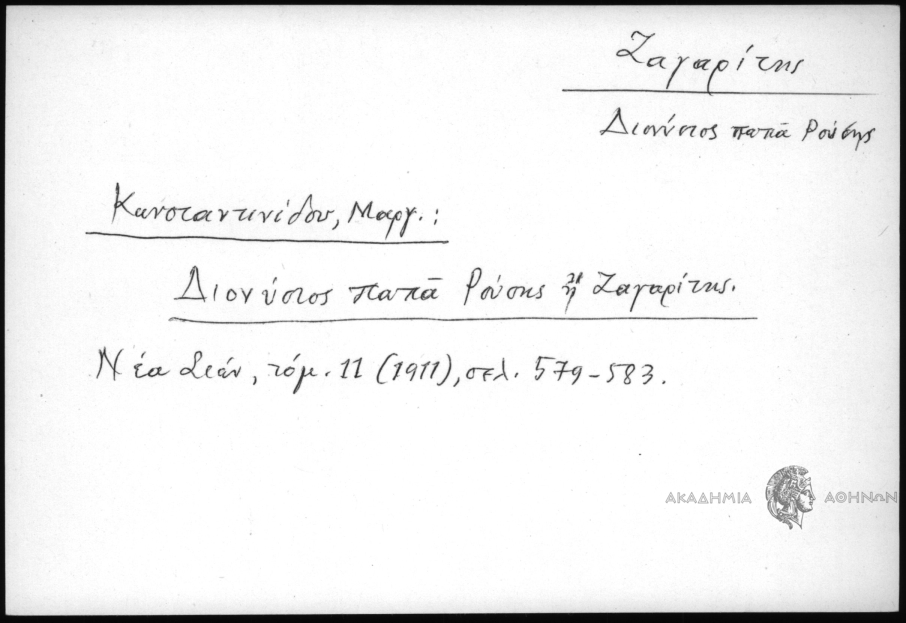 Ζαγαρίτης
Διονύσιος παπᾶ Ρούσης
Κωνσταντινίδου, Μαργ.:
Διονύσιος παπᾶ Ρούσης ἢ Ζαγαρίτης.
Νέα Σιών, τόμ. 11 (1911), σελ. 579-583.
ΑΚΑΔΗΜΙΑ ΑΘΗΝΩΝ